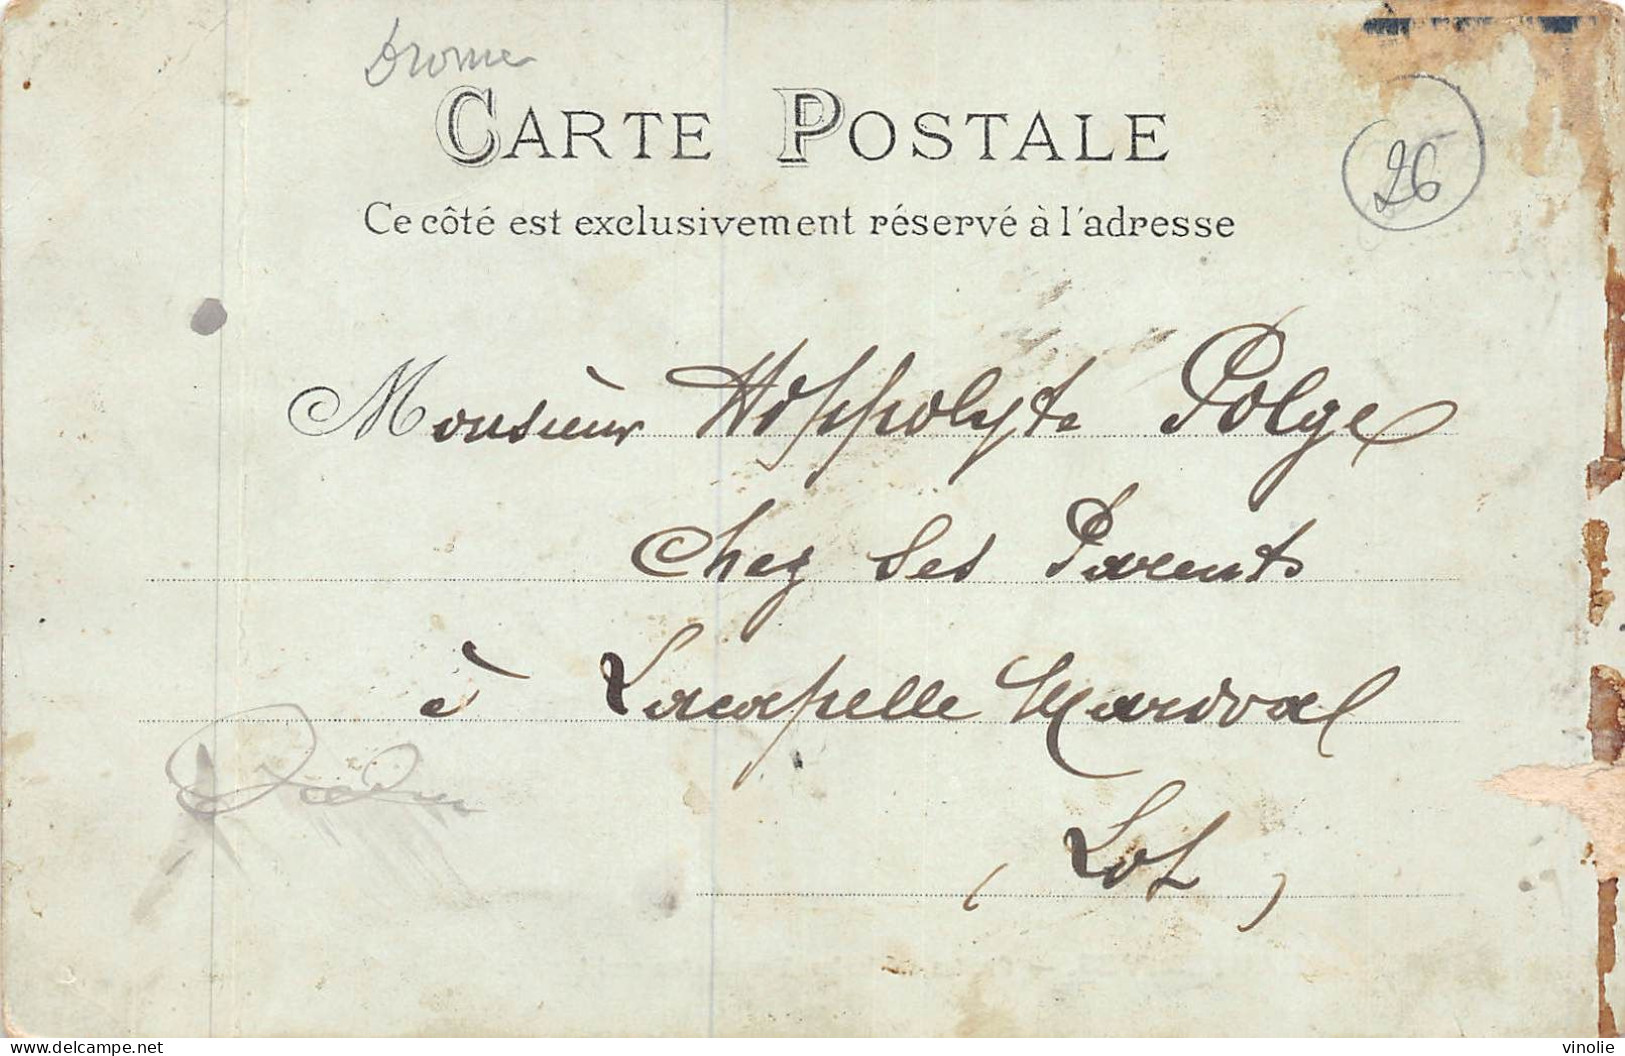 Drome
CARTE POSTALE
26
Ce côté est exclusivement réservé à l'adresse
Monsieur Hippolyte Polge
Chez Ses Parents
à Lacapelle Marival
(Lot)
delcampe.net
vinolie